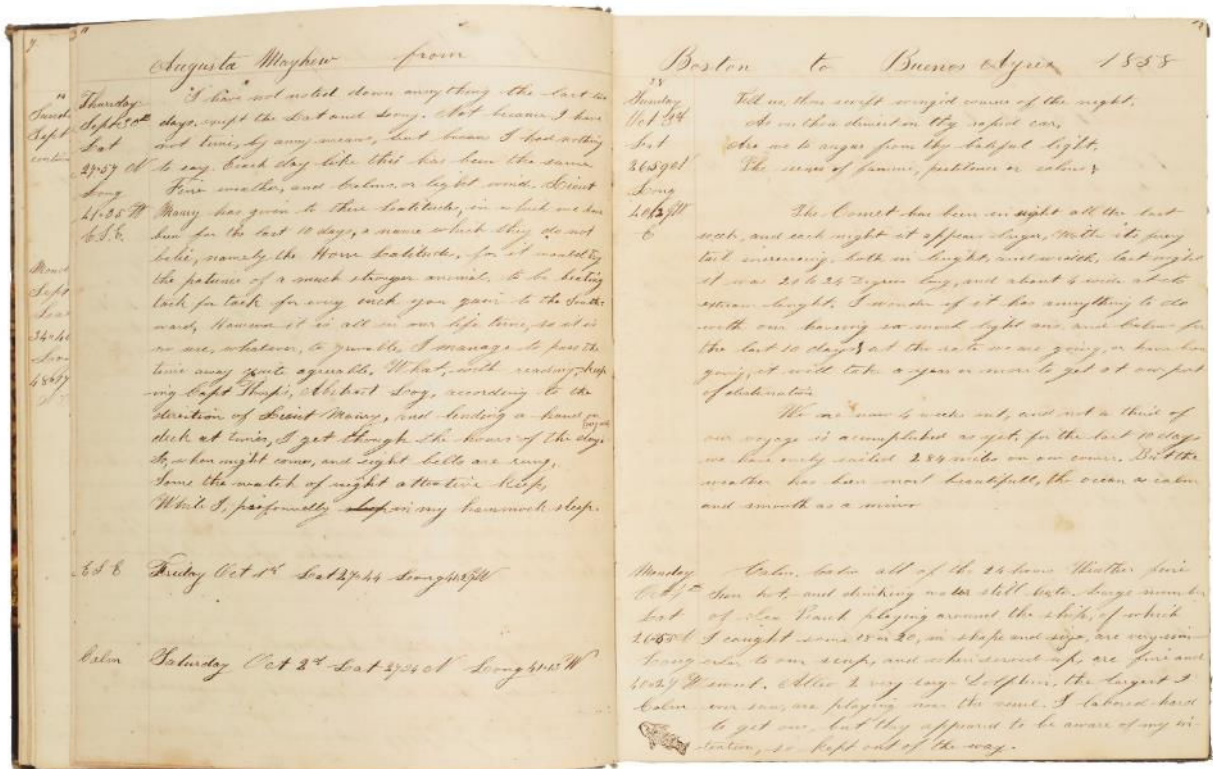 Augusta Mayhew from
Thursday
Sept 30th
Lat
27-57 N
Long
41-25 W
E.S.E.
I have not noted down anything the last
days, exept the Lat and Long. Not because I have
not time, by any means, but because I had nothing
to say. Each day like this has been the same
Fine weather, and Calms, or light wind. Lieut
Maury has given to these Latitudes, in which we have
been for the last 10 days, a name which they do not
belie, namely the Horse Latitudes, for it would try
the patience of a much stronger animal, to be beating
tack for tack for every inch you gain to the South
ward, However it is all in our life time, so it is
no use, whatever, to grumble, I manage to pass the
time away quite agreable. What, with reading, keep
ing Capt Abstract Log, according to the
direction of Lieut Maury, and lending a hand on
deck at times, I get though the hours of the day
So, when night comes, and eight bells are rung,
Some the watch of night attentive keep,
While I, profoundly sleep in my hammock sleep.
E S E Friday Oct 1st Lat 27-44 Long W
Calm Saturday Oct 2d Lat 27-24 N Long 41-13 W
Boston to Buenos Ayres 1858
28
Sunday
Oct 3d
Lat
26-59 N
Long
W
E
Tell us, thou swift wing'd courser of the night,
As thou drivest on thy rapid car,
Are we to augur from thy baleful light,
The scenes of famine, pestilence or
The Comet has been in sight all the last
week, and each night it appears larger, With its firey
tail increasing, both in lenght, and width, last night
it was 20 to 24 Degrees long, and about 4 wide at its
extream lenght. I wonder if it has anything to do
with our having so much light airs, and Calms for
the last 10 days, at the rate we are going, or have been
going, it will take a year or more to get at our port
of destination
We are now 4 weeks out, and not a third of
our voyage is acumplished as yet, for the last 10 days
we have only sailed 284 miles on our course. But the
weather has been most beautifull, the ocean as calm
and smooth as a mirror
Monday
Oct 4th
Lat
26-55 N
Long
41-27 W
Calm
Calm, Calm all of the 24 hours Weather fine
Sun hot, and drinking water still Large number
of Sea Perch playing around the ship, of which
I caught some 18 or 20, in shape and size, are very sim
ilar to our scup, and when served up, are fine and
sweet. Allso 2 very large Dolphin, the largest I
ever saw, are playing near the vessel. I labored hard
to get one, but they appeared to be aware of my in
tention, so kept out of the way.